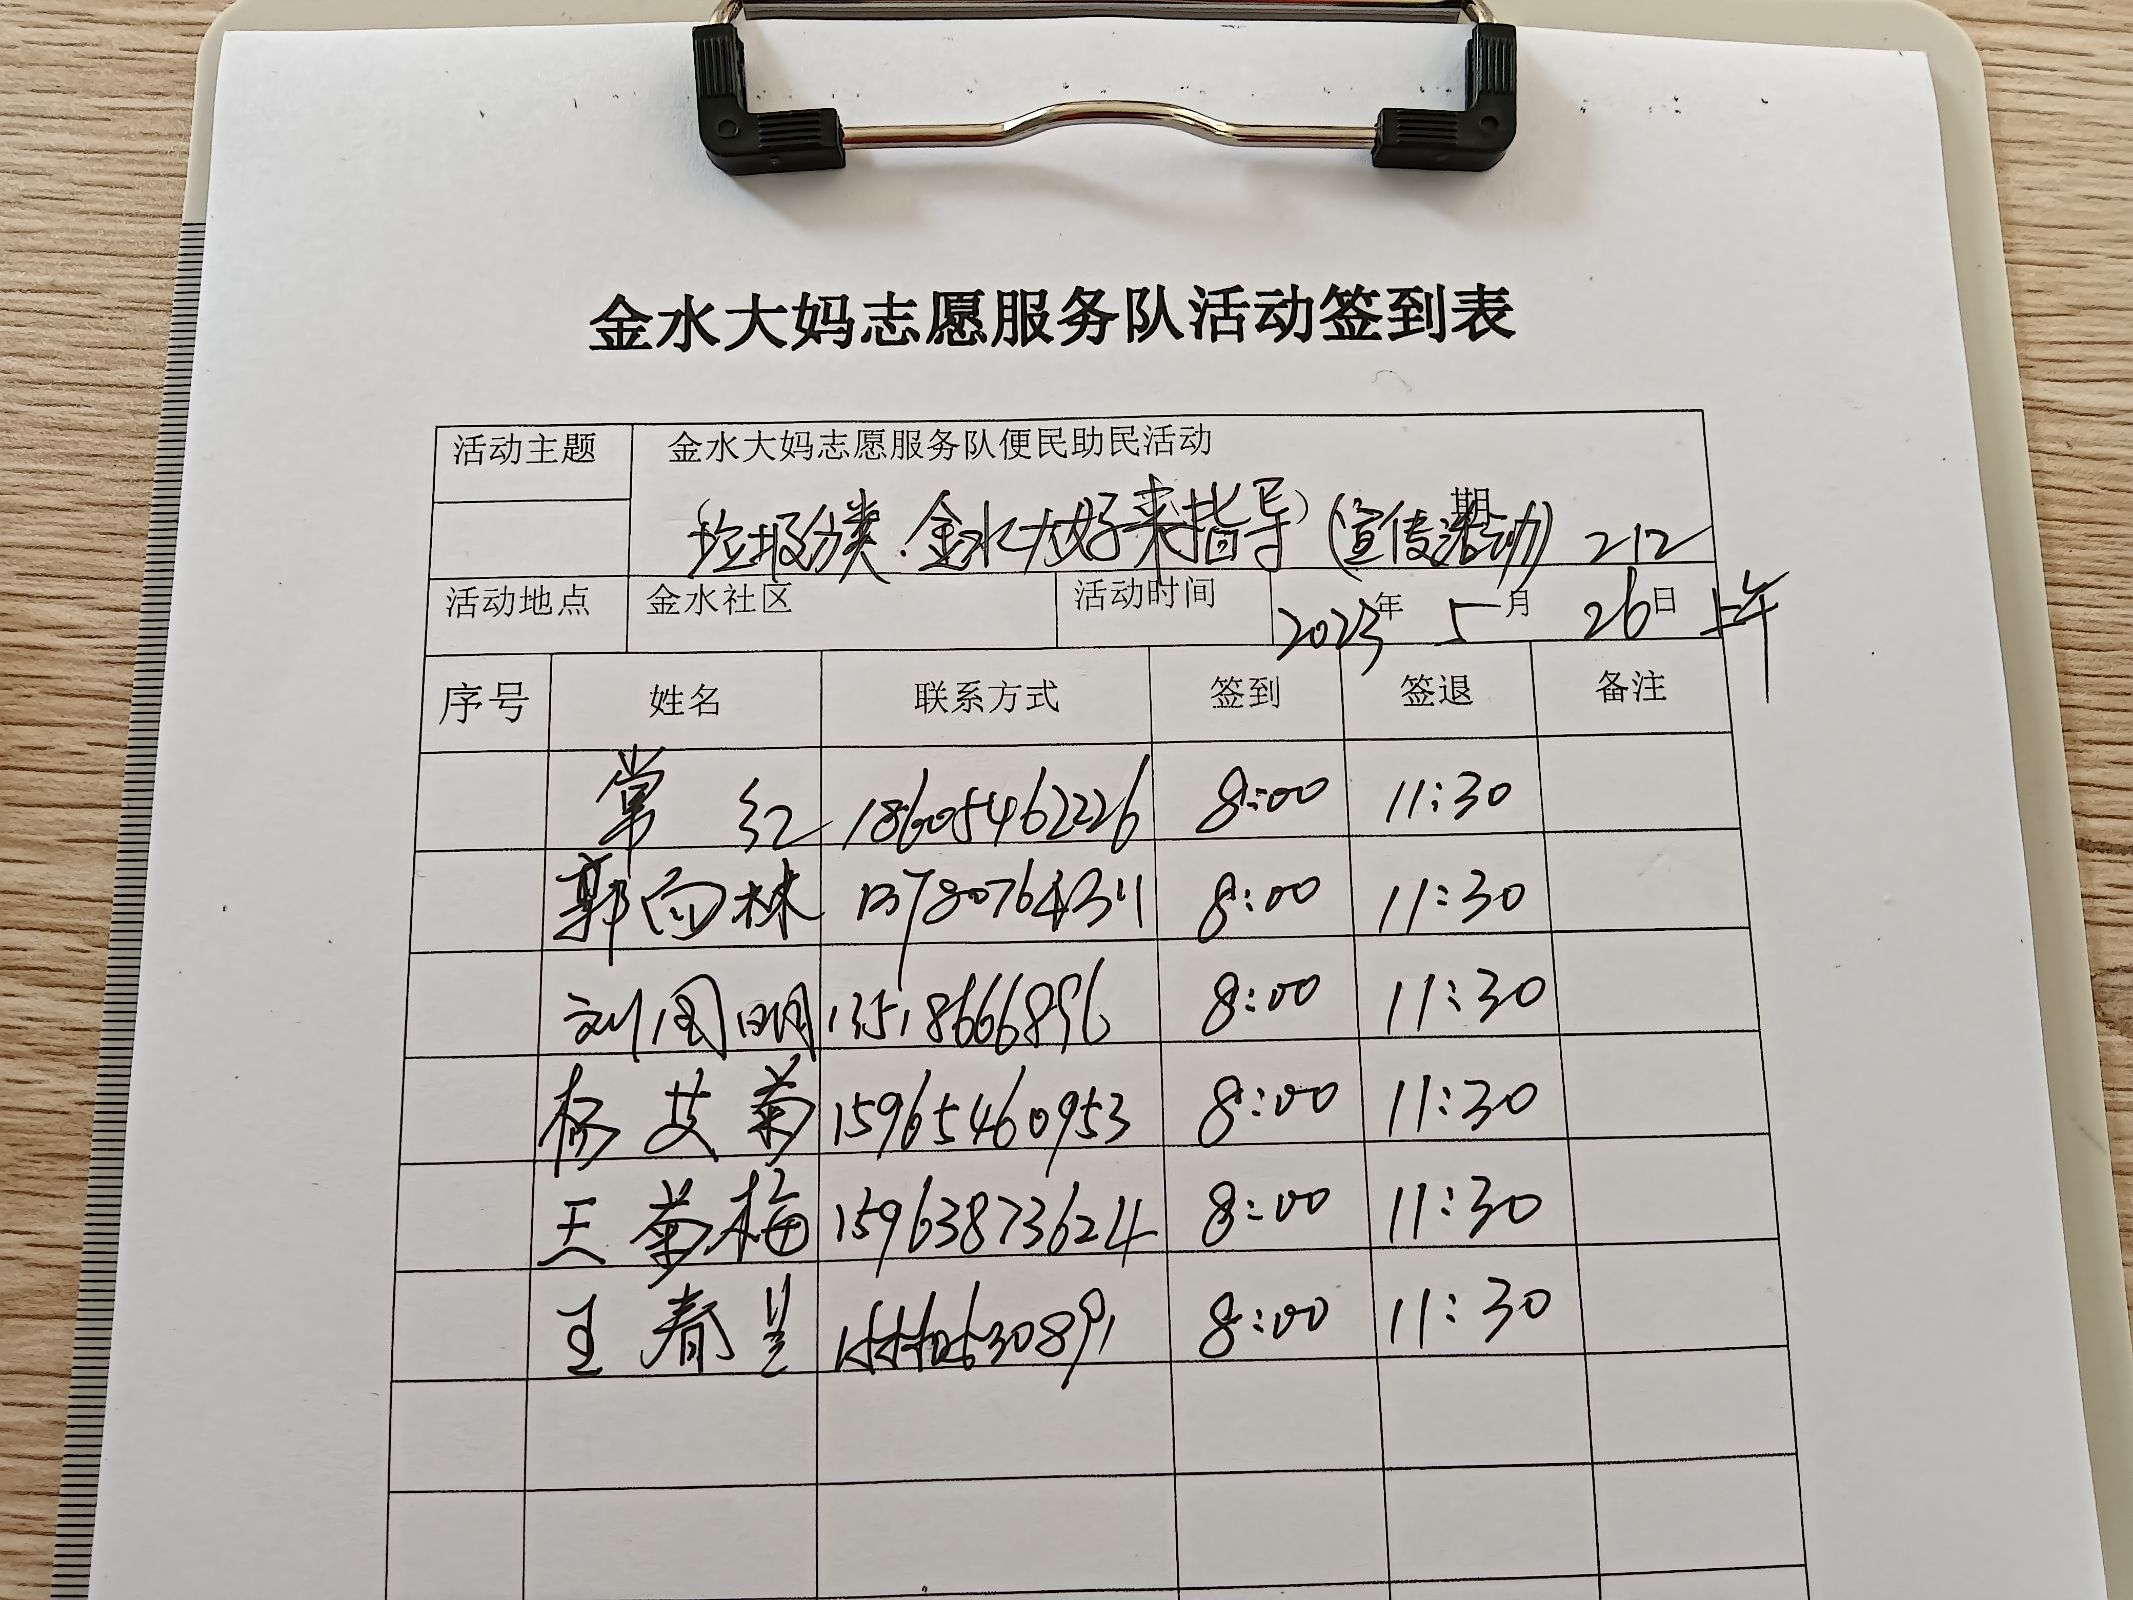 金水大妈志愿服务队活动签到表
活动主题 金水大妈志愿服务队便民助民活动
垃圾分类.金水大好来指导(宣传活动) 期 212
活动地点 金水社区 活动时间 2023年 5月 26日 上午
序号 姓名 联系方式 签到 签退 备注
常红 18605462226 8:00 11:30
郭雨林 13780764311 8:00 11:30
刘国明 13518666896 8:00 11:30
杨艾菊 15965460953 8:00 11:30
王菊梅 15963873624 8:00 11:30
王春 8:00 11:30